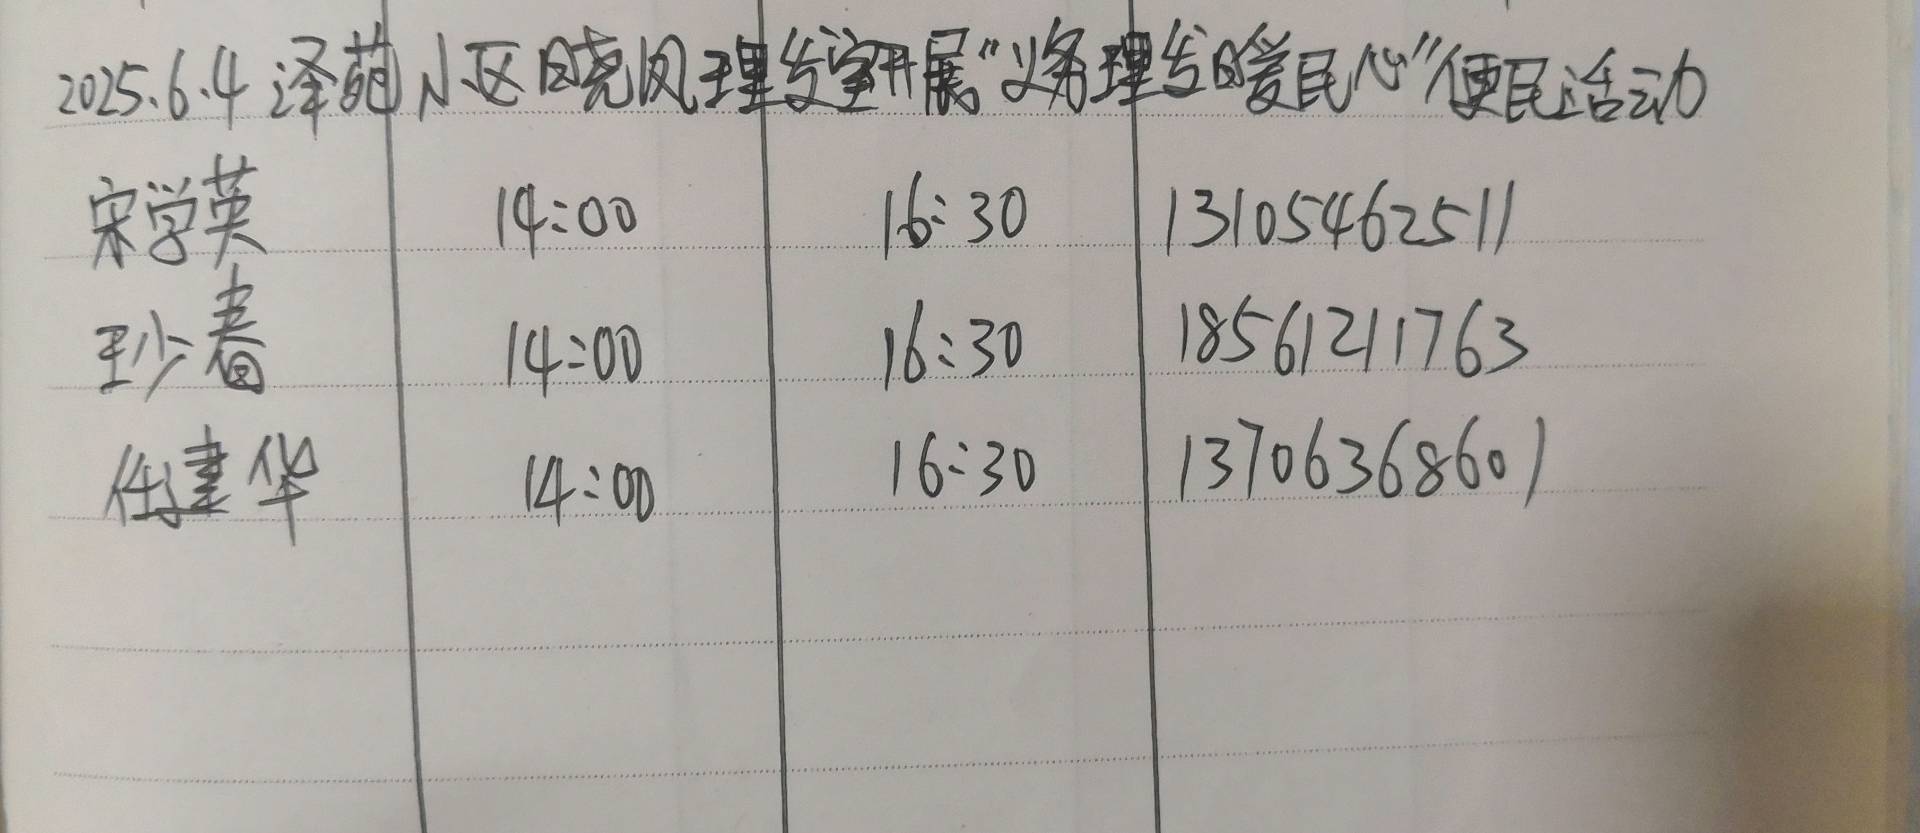 2025.6.4 泽苑小区晓风理发室开展“义务理发暖民心”便民活动
宋学英 14:00 16:30 13105462511
王少春 14:00 16:30 18561211763
任建华 14:00 16:30 13706368601